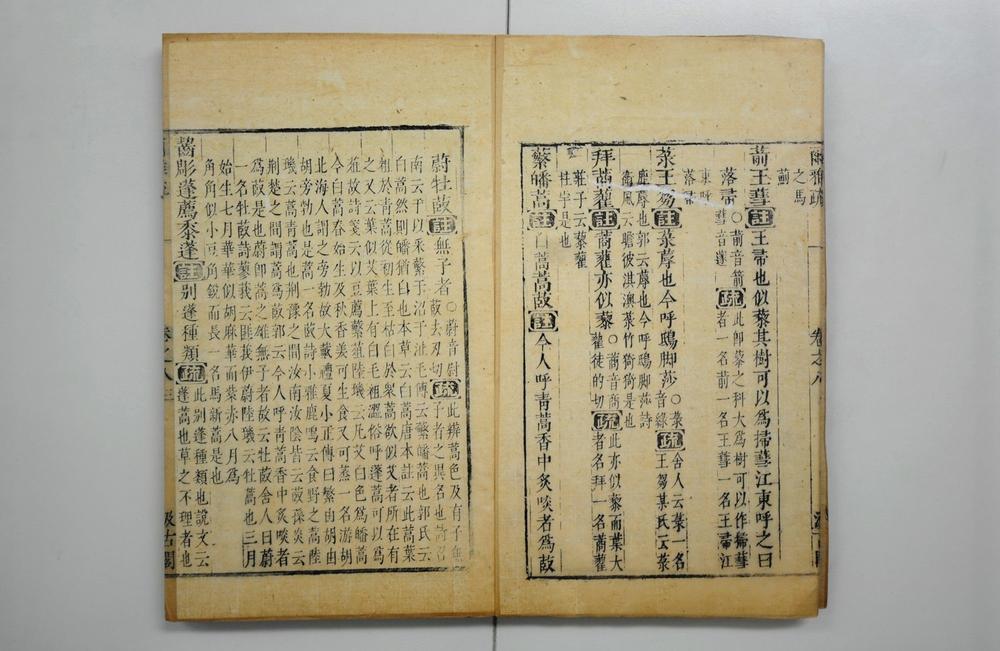 爾雅疏 卷之八
之馬
薊
葥王蔧註王帚也似藜其樹可以爲掃蔧江東呼之曰
落帚○葥音箭
蔧音遂
疏此即藜之科大爲樹可以作掃蔧
者一名葥一名王蔧一名王帚江
東呼
落帚
菉王芻註菉蓐也今呼鴟脚莎○菉
音綠
疏舍人云菉一名
王芻某氏云菉
鹿蓐也郭云蓐也今呼鴟脚莎詩
衛風云瞻彼淇澳菉竹猗猗是也
拜蔏藋註蔏藋亦似藜○蔏音商
藋徒的切
疏此亦似藜而葉大
者名拜一名蔏藋
莊子云藜藋
柱宇是也
蘩皤蒿註白蒿蒿菣註今人呼青蒿香中炙啖者爲菣
蔚牡菣註無子者○蔚音尉
菣去刃切
疏此辨蒿色及有子無
子者之異名也詩召
南云于以采蘩于沼于沚毛傳云蘩皤蒿也郭氏云
白蒿然則皤猶白也本草云白蒿唐本註云此蒿葉
粗於青蒿從初生至枯白於衆蒿欲似艾者所在有
之又云葉似艾葉上有白毛粗澀俗呼蓬蒿可以爲
菹故詩箋云以豆薦蘩菹陸璣云凡艾白色爲皤蒿
今白蒿春始生及秋香美可生食又可蒸一名游胡
北海人謂之旁勃故大戴禮夏小正傳曰蘩由胡由
胡旁勃也是蒿一名菣詩小雅鹿鳴云食野之蒿陸
璣云蒿青蒿也荆豫之間汝南汝陰皆云菣孫炎云
荆楚之間謂蒿爲菣郭云今人呼青蒿香中炙啖者
爲菣是也蔚即蒿之雄無子者故云牡菣舍人曰蔚
一名牡菣詩蓼我云匪我伊蔚陸璣云牡蒿也三月
始生七月華華似胡麻華而紫赤八月爲
角角似小豆角銳而長一名馬新蒿是也
齧彫蓬薦黍蓬註别蓬種類疏此别蓬種類也說文云
蓬蒿也草之不理者也
卷之八 三 汲古閣